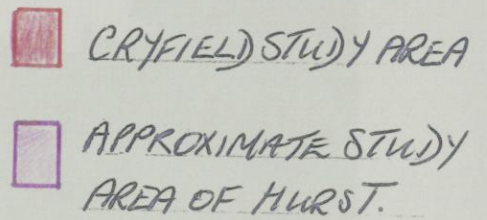 CRYFIELD STUDY AREA
APPROXIMATE STUDY
AREA OF HURST.